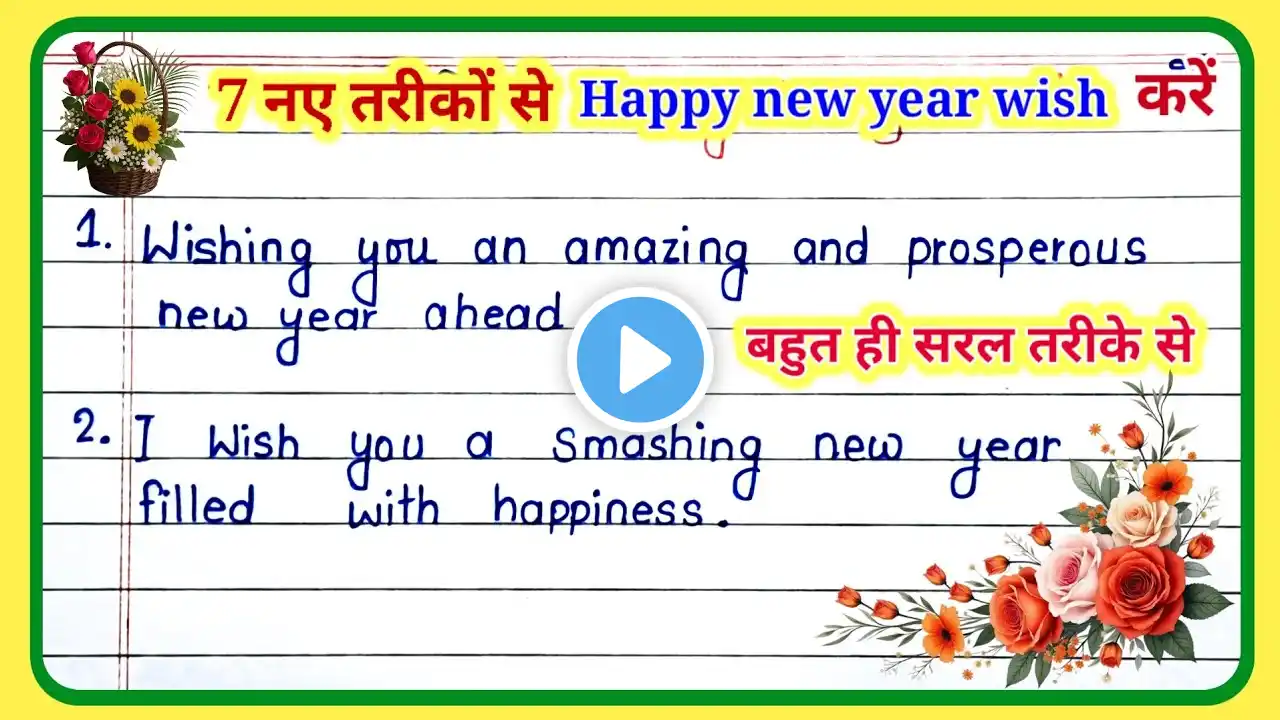 7 नए तरीकों से Happy new year wish करें
1. Wishing you an amazing and prosperous
new year ahead
बहुत ही सरल तरीके से
2. I Wish you a smashing new year
filled with happiness.